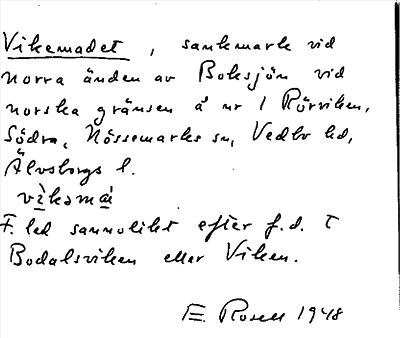 Vikemadet, sankmark vid
norra änden av Boksjön vid
norska gränsen å nr 1 Rörviken,
Södra, Nössemarks sn, Vedbo hd,
Älvsborgs l.
vìkəmá
F. led sannolikt efter f.d. T
Bodalsviken eller Viken.
E. Rosell 1948